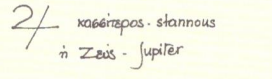 ♃ κασσίτερος - stannous
ἢ Ζεύς - Jupiter